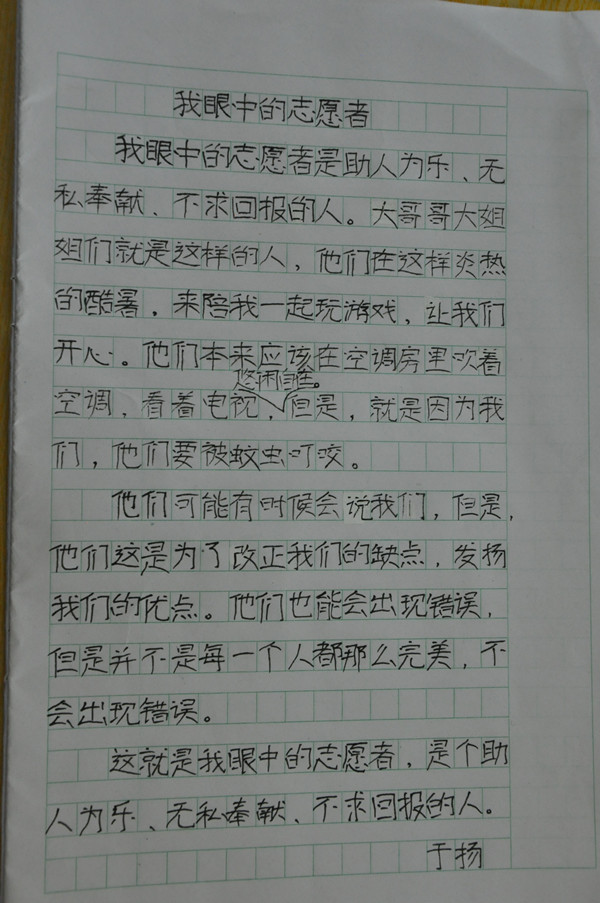 我眼中的志愿者
我眼中的志愿者是助人为乐、无
私奉献、不求回报的人。大哥哥大姐
姐们就是这样的人，他们在这样炎热
的酷暑，来陪我一起玩游戏，让我们
开心。他们本来应该在空调房里吹着
悠闲自在。
空调，看着电视，但是，就是因为我
们，他们要被蚊虫叮咬。
他们可能有时候会说我们，但是，
他们这是为了改正我们的缺点，发扬
我们的优点。他们也能会出现错误，
但是并不是每一个人都那么完美，不
会出现错误。
这就是我眼中的志愿者，是个助
人为乐、无私奉献、不求回报的人。
于扬